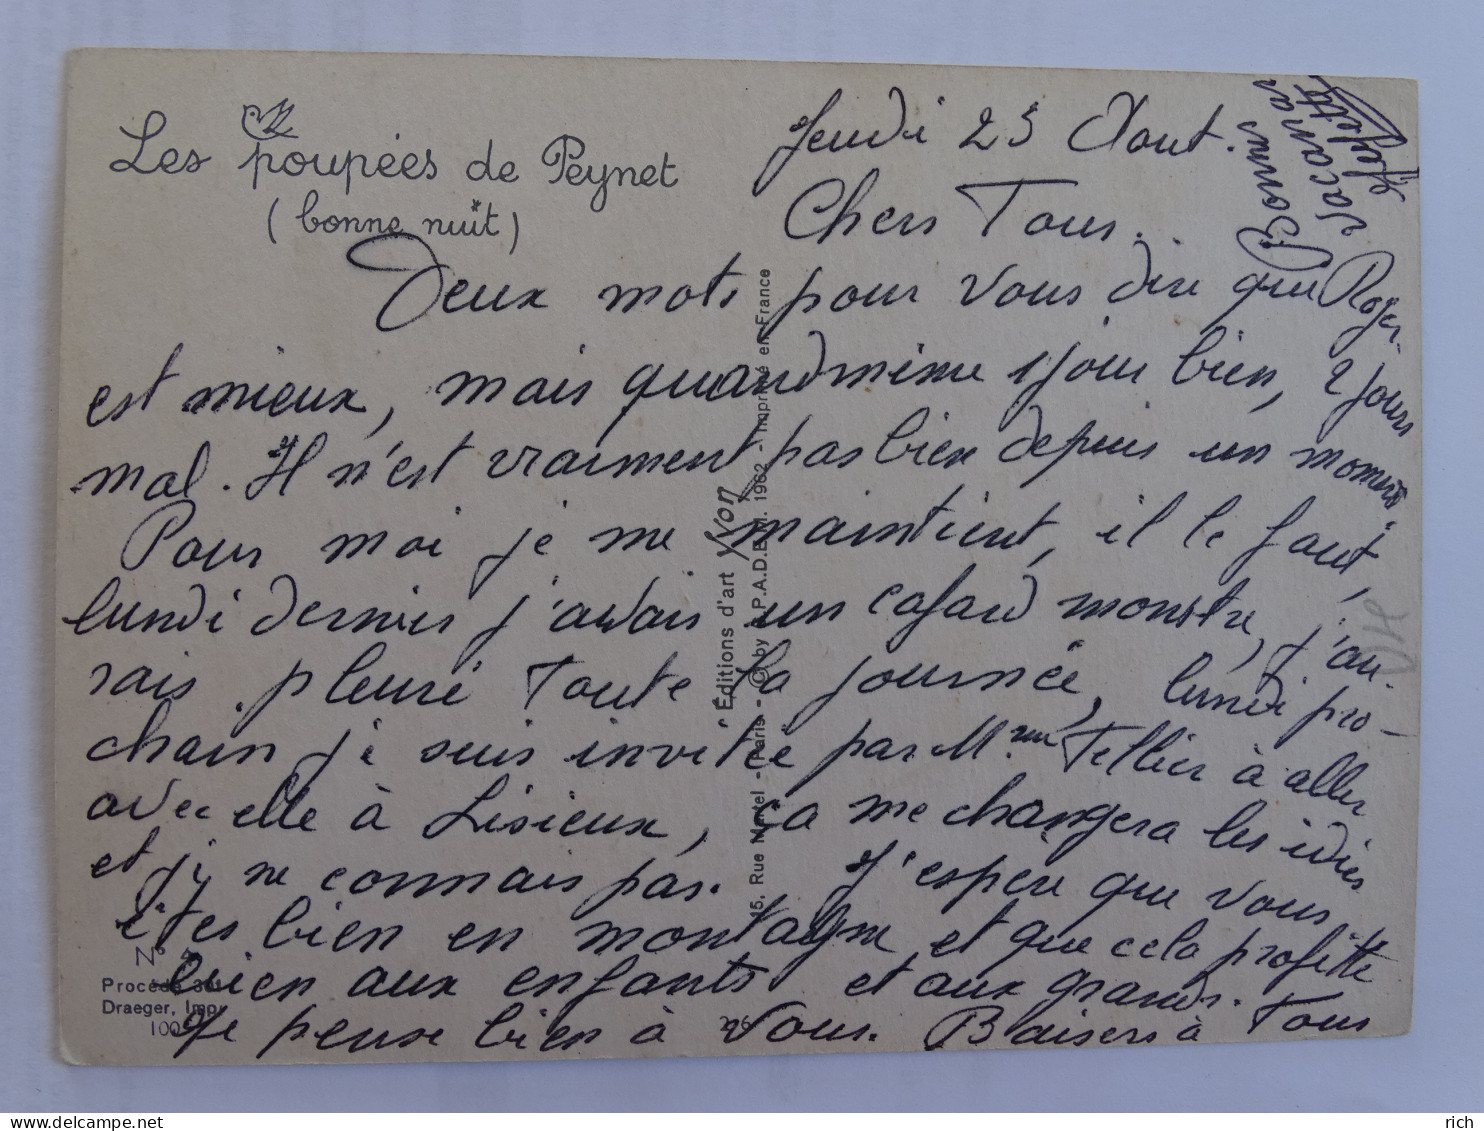 Les poupées de Peynet
(bonne nuit)
Jeudi 23 Aout.
Chers Tous.
Deux mots pour vous dire que Roger
est mieux, mais quandmême 1 jour bien, 2 jours
mal. Il n'est vraiment pas bien depuis un moment
Pour moi je me maintient, il le faut,
lundi dernier j'avais un cafard monstre, j'au-
rais pleuré toute la journée, lundi pro-
chain je suis invitée par Mme Tellier à aller
avec elle à Lisieux, ça me changera les idées
et j'y ne connais pas. J'espère que vous
êtes bien en montagne et que cela profitte
bien aux enfants et aux grands.
Je pense bien à Vous. Baisers à Tous
Bonnes
Vacances
Éditions d'art Yvon
15, Rue Martel - Paris - © by S.P.A.D.E.M. 1962 - Imprimé en France
N° 4
Procédé 301
Draeger, Imp.
100
rich